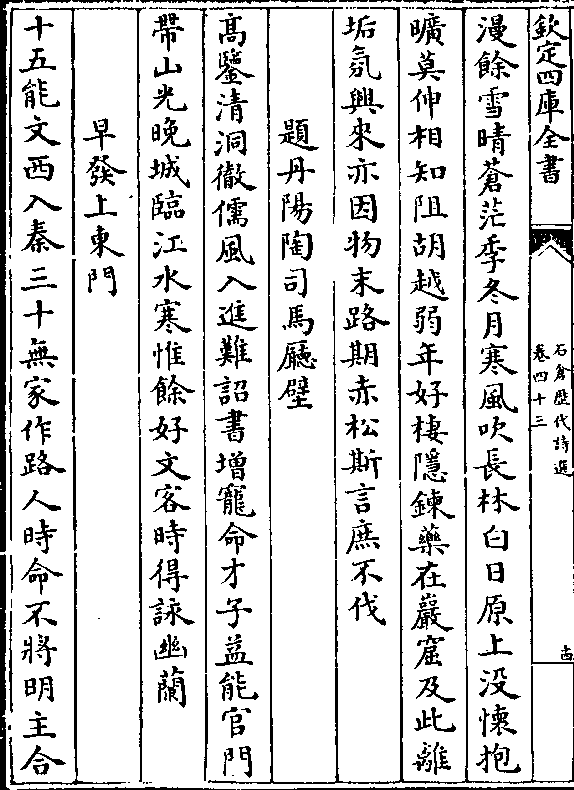 欽定四庫全書
石倉歷代詩選
卷四十三
十四
漫餘雪晴蒼茫季冬月寒風吹長林白日原上没懐抱
曠莫伸相知阻胡越弱年好棲隱鍊藥在巖窟及此離
垢氛興來亦因物末路期赤松斯言庶不伐
題丹陽陶司馬廳壁
髙鑒清洞徹儒風入進難詔書增寵命才子益能官門
帶山光晚城臨江水寒惟餘好文客時得詠幽蘭
早發上東門
十五能文西入秦三十無家作路人時命不將明主合